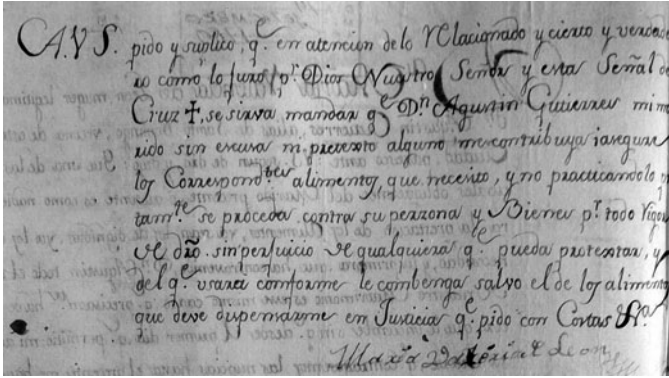 A. V. S. pido y suplico, q.e en atencion de lo relacionado y cierto y verdade
ro como lo juro p.r Dios Nuestro Señor y esta Señal de
Cruz +, se sirva mandar q.e D.n Agustin Gutierres mi ma
rido sin escusa ni pretexto alguno me contribuya i asegure
los Correspond.tes alimentos, que necesito, y no practicandolo
tam.te se proceda contra su perzona y Bienes p.r todo rigor
de dro. sin perjuicio de qualquiera q.e pueda protextar, y
del q.e usará comforme le combenga salvo el de los alimento
que deve dispensarme en Justicia q.e pido con Costas &a.
Maria Leon